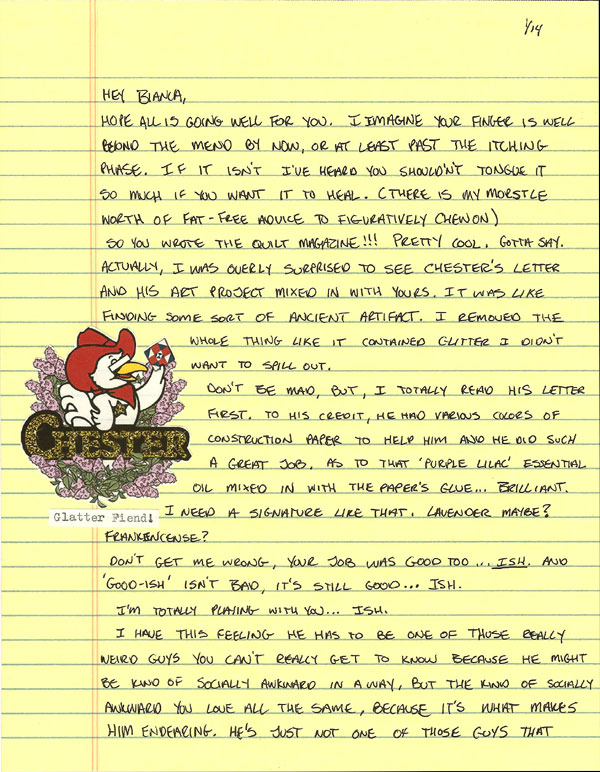 1/14
HEY BIANCA,
HOPE ALL IS GOING WELL FOR YOU. I IMAGINE YOUR FINGER IS WELL
BEYOND THE MEND BY NOW, OR AT LEAST PAST THE ITCHING
PHASE. IF IT ISN'T I'VE HEARD YOU SHOULDN'T TONGUE IT
SO MUCH IF YOU WANT IT TO HEAL. (THERE IS MY MORSTLE
WORTH OF FAT-FREE ADVICE TO FIGURATIVELY CHEW ON)
SO YOU WROTE THE QUILT MAGAZINE!!! PRETTY COOL. GOTTA SAY.
ACTUALLY, I WAS OVERLY SURPRISED TO SEE CHESTER'S LETTER
AND HIS ART PROJECT MIXED IN WITH YOURS. IT WAS LIKE
FINDING SOME SORT OF ANCIENT ARTIFACT. I REMOVED THE
WHOLE THING LIKE IT CONTAINED GLITTER I DIDN'T
WANT TO SPILL OUT.
DON'T BE MAD, BUT, I TOTALLY READ HIS LETTER
FIRST. TO HIS CREDIT, HE HAD VARIOUS COLORS OF
CONSTRUCTION PAPER TO HELP HIM AND HE DID SUCH
A GREAT JOB. AS TO THAT 'PURPLE LILAC' ESSENTIAL
OIL MIXED IN WITH THE PAPER'S GLUE... BRILLIANT.
I NEED A SIGNATURE LIKE THAT. LAVENDER MAYBE?
FRANKENCENSE?
DON'T GET ME WRONG, YOUR JOB WAS GOOD TOO... ISH. AND
'GOOD-ISH' ISN'T BAD, IT'S STILL GOOD... ISH.
I'M TOTALLY PLAYING WITH YOU... ISH.
I HAVE THIS FEELING HE HAS TO BE ONE OF THOSE REALLY
WEIRD GUYS YOU CAN'T REALLY GET TO KNOW BECAUSE HE MIGHT
BE KIND OF SOCIALLY AWKWARD IN A WAY, BUT THE KIND OF SOCIALLY
AWKWARD YOU LOVE ALL THE SAME, BECAUSE IT'S WHAT MAKES
HIM ENDEARING. HE'S JUST NOT ONE OF THOSE GUYS THAT
CHESTER
Glatter Fiend!